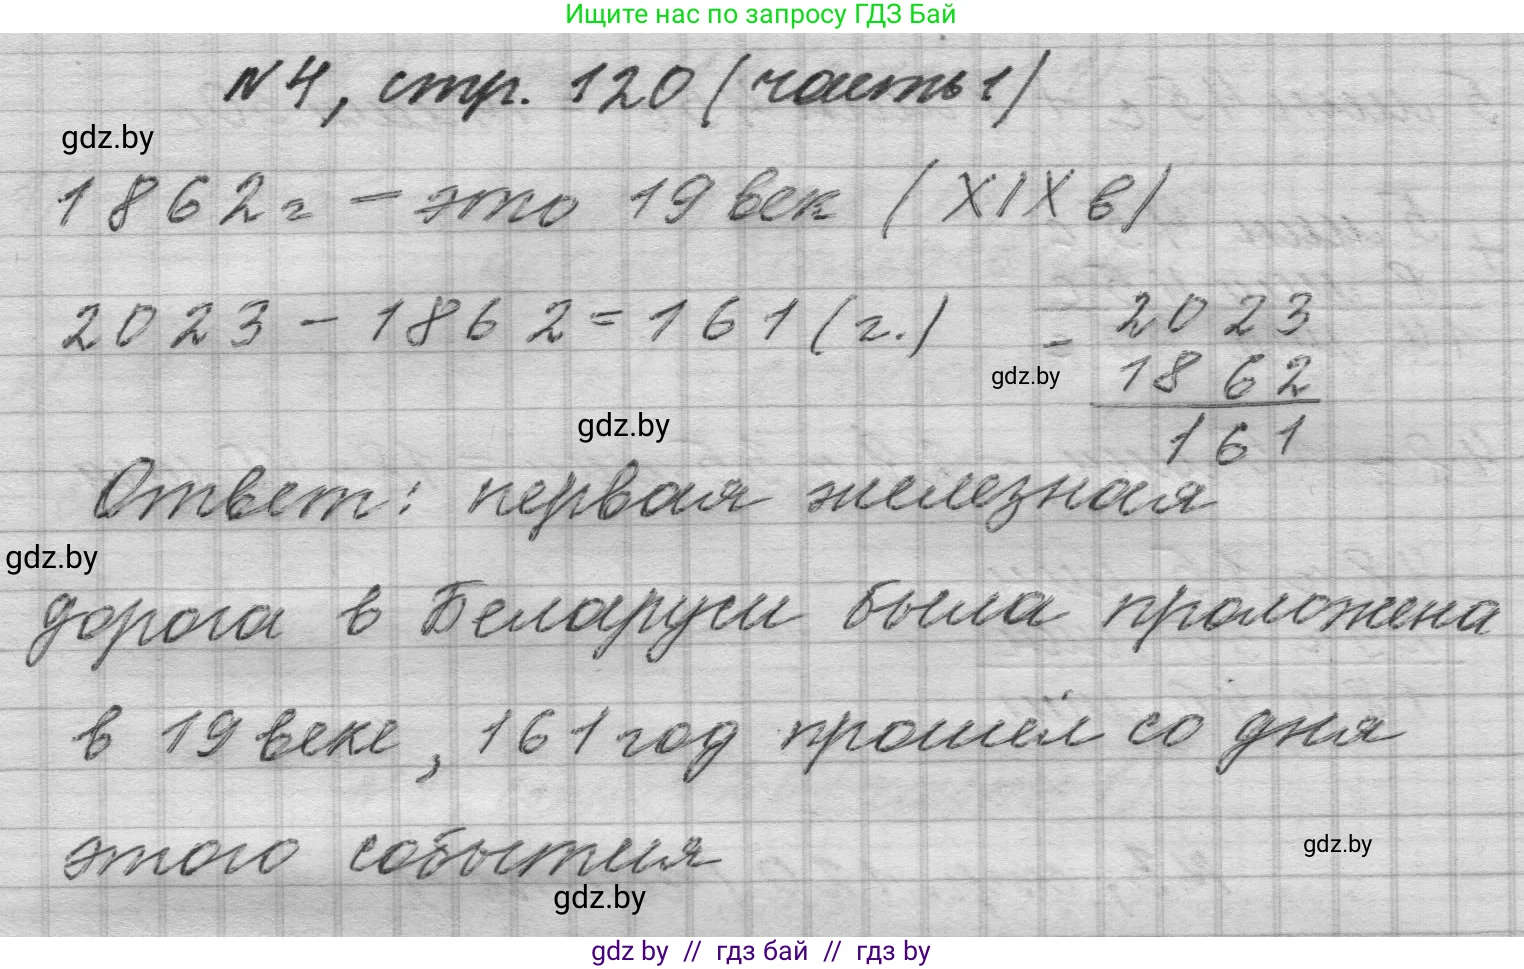 Ищите нас по запросу ГДЗ Бай
№4, стр. 120 (часть 1)
gdz.by
1862 г – это 19 век (XIX в)
2023 – 1862 = 161 (г.)
– 2023
1862
161
gdz.by
gdz.by
Ответ: первая железная
gdz.by
дорога в Беларуси была проложена
в 19 веке, 161 год прошёл со дня
этого события
gdz.by
gdz.by
gdz by // гдз бай // гдз by